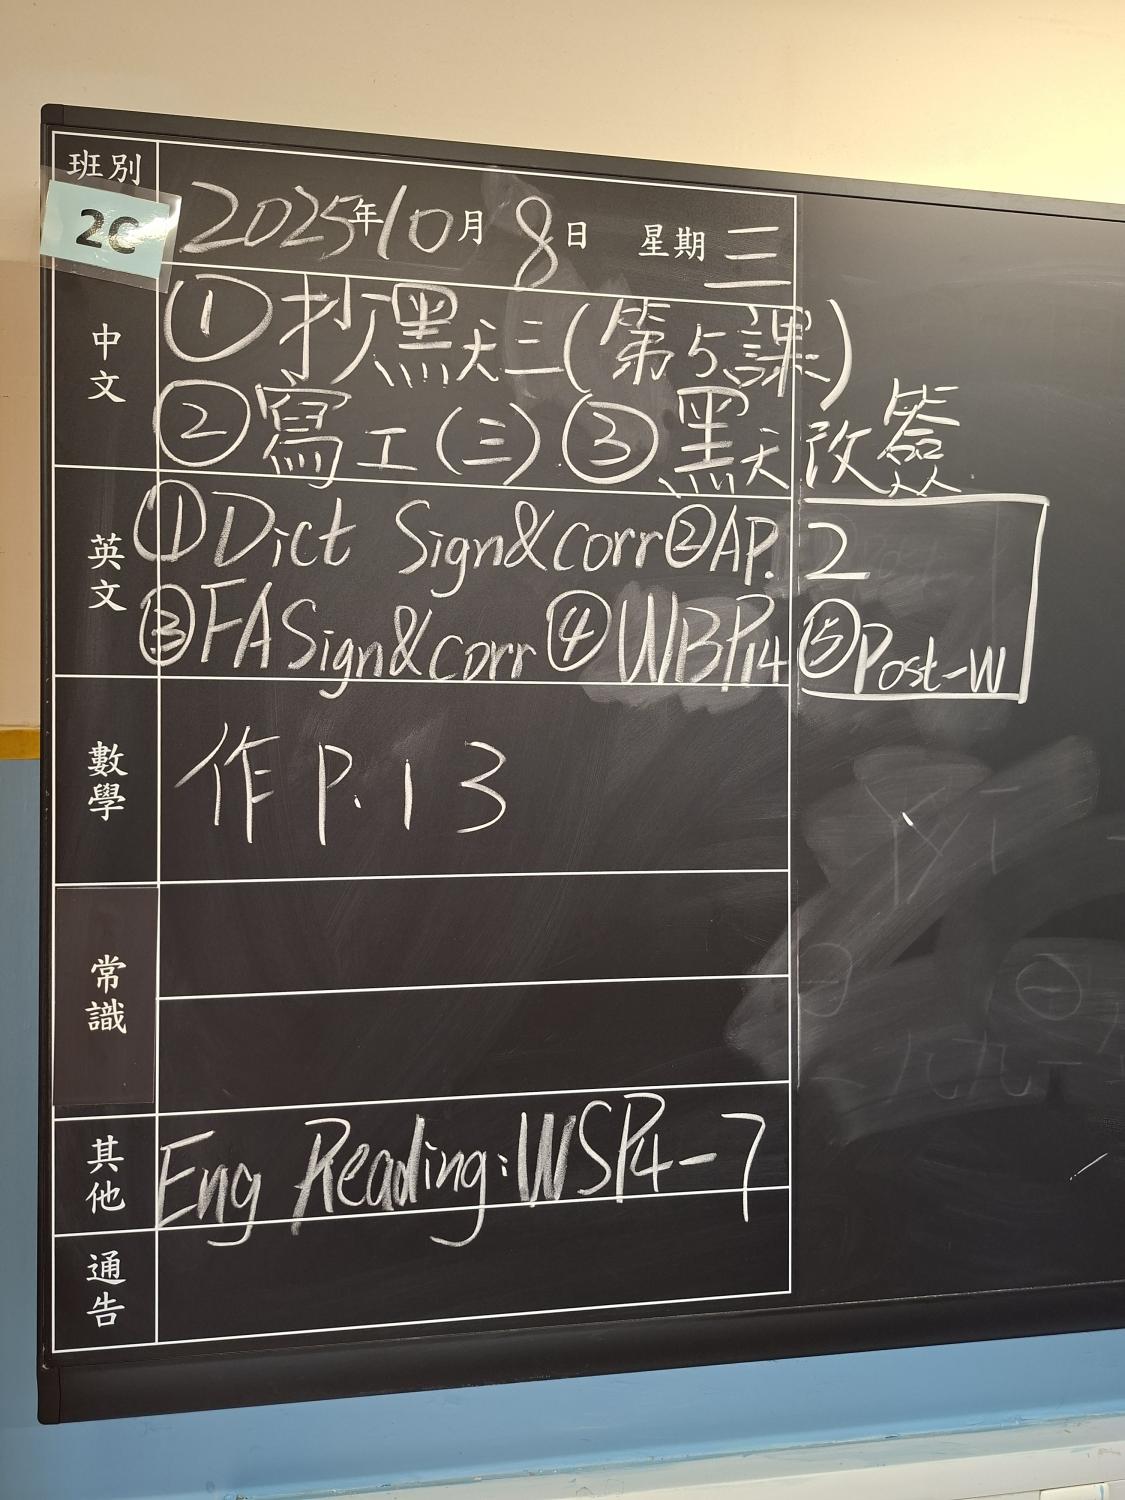 班別 2C
2025年10月8日 星期三
中文
①抄默三(第5課)
②寫工(三) ③默改簽
英文
①Dict Sign&corr ②AP. 2
③FA Sign&corr ④WBP14 ⑤Post-W
數學
作 P.13
常識
其他
Eng Reading: WSP4-7
通告